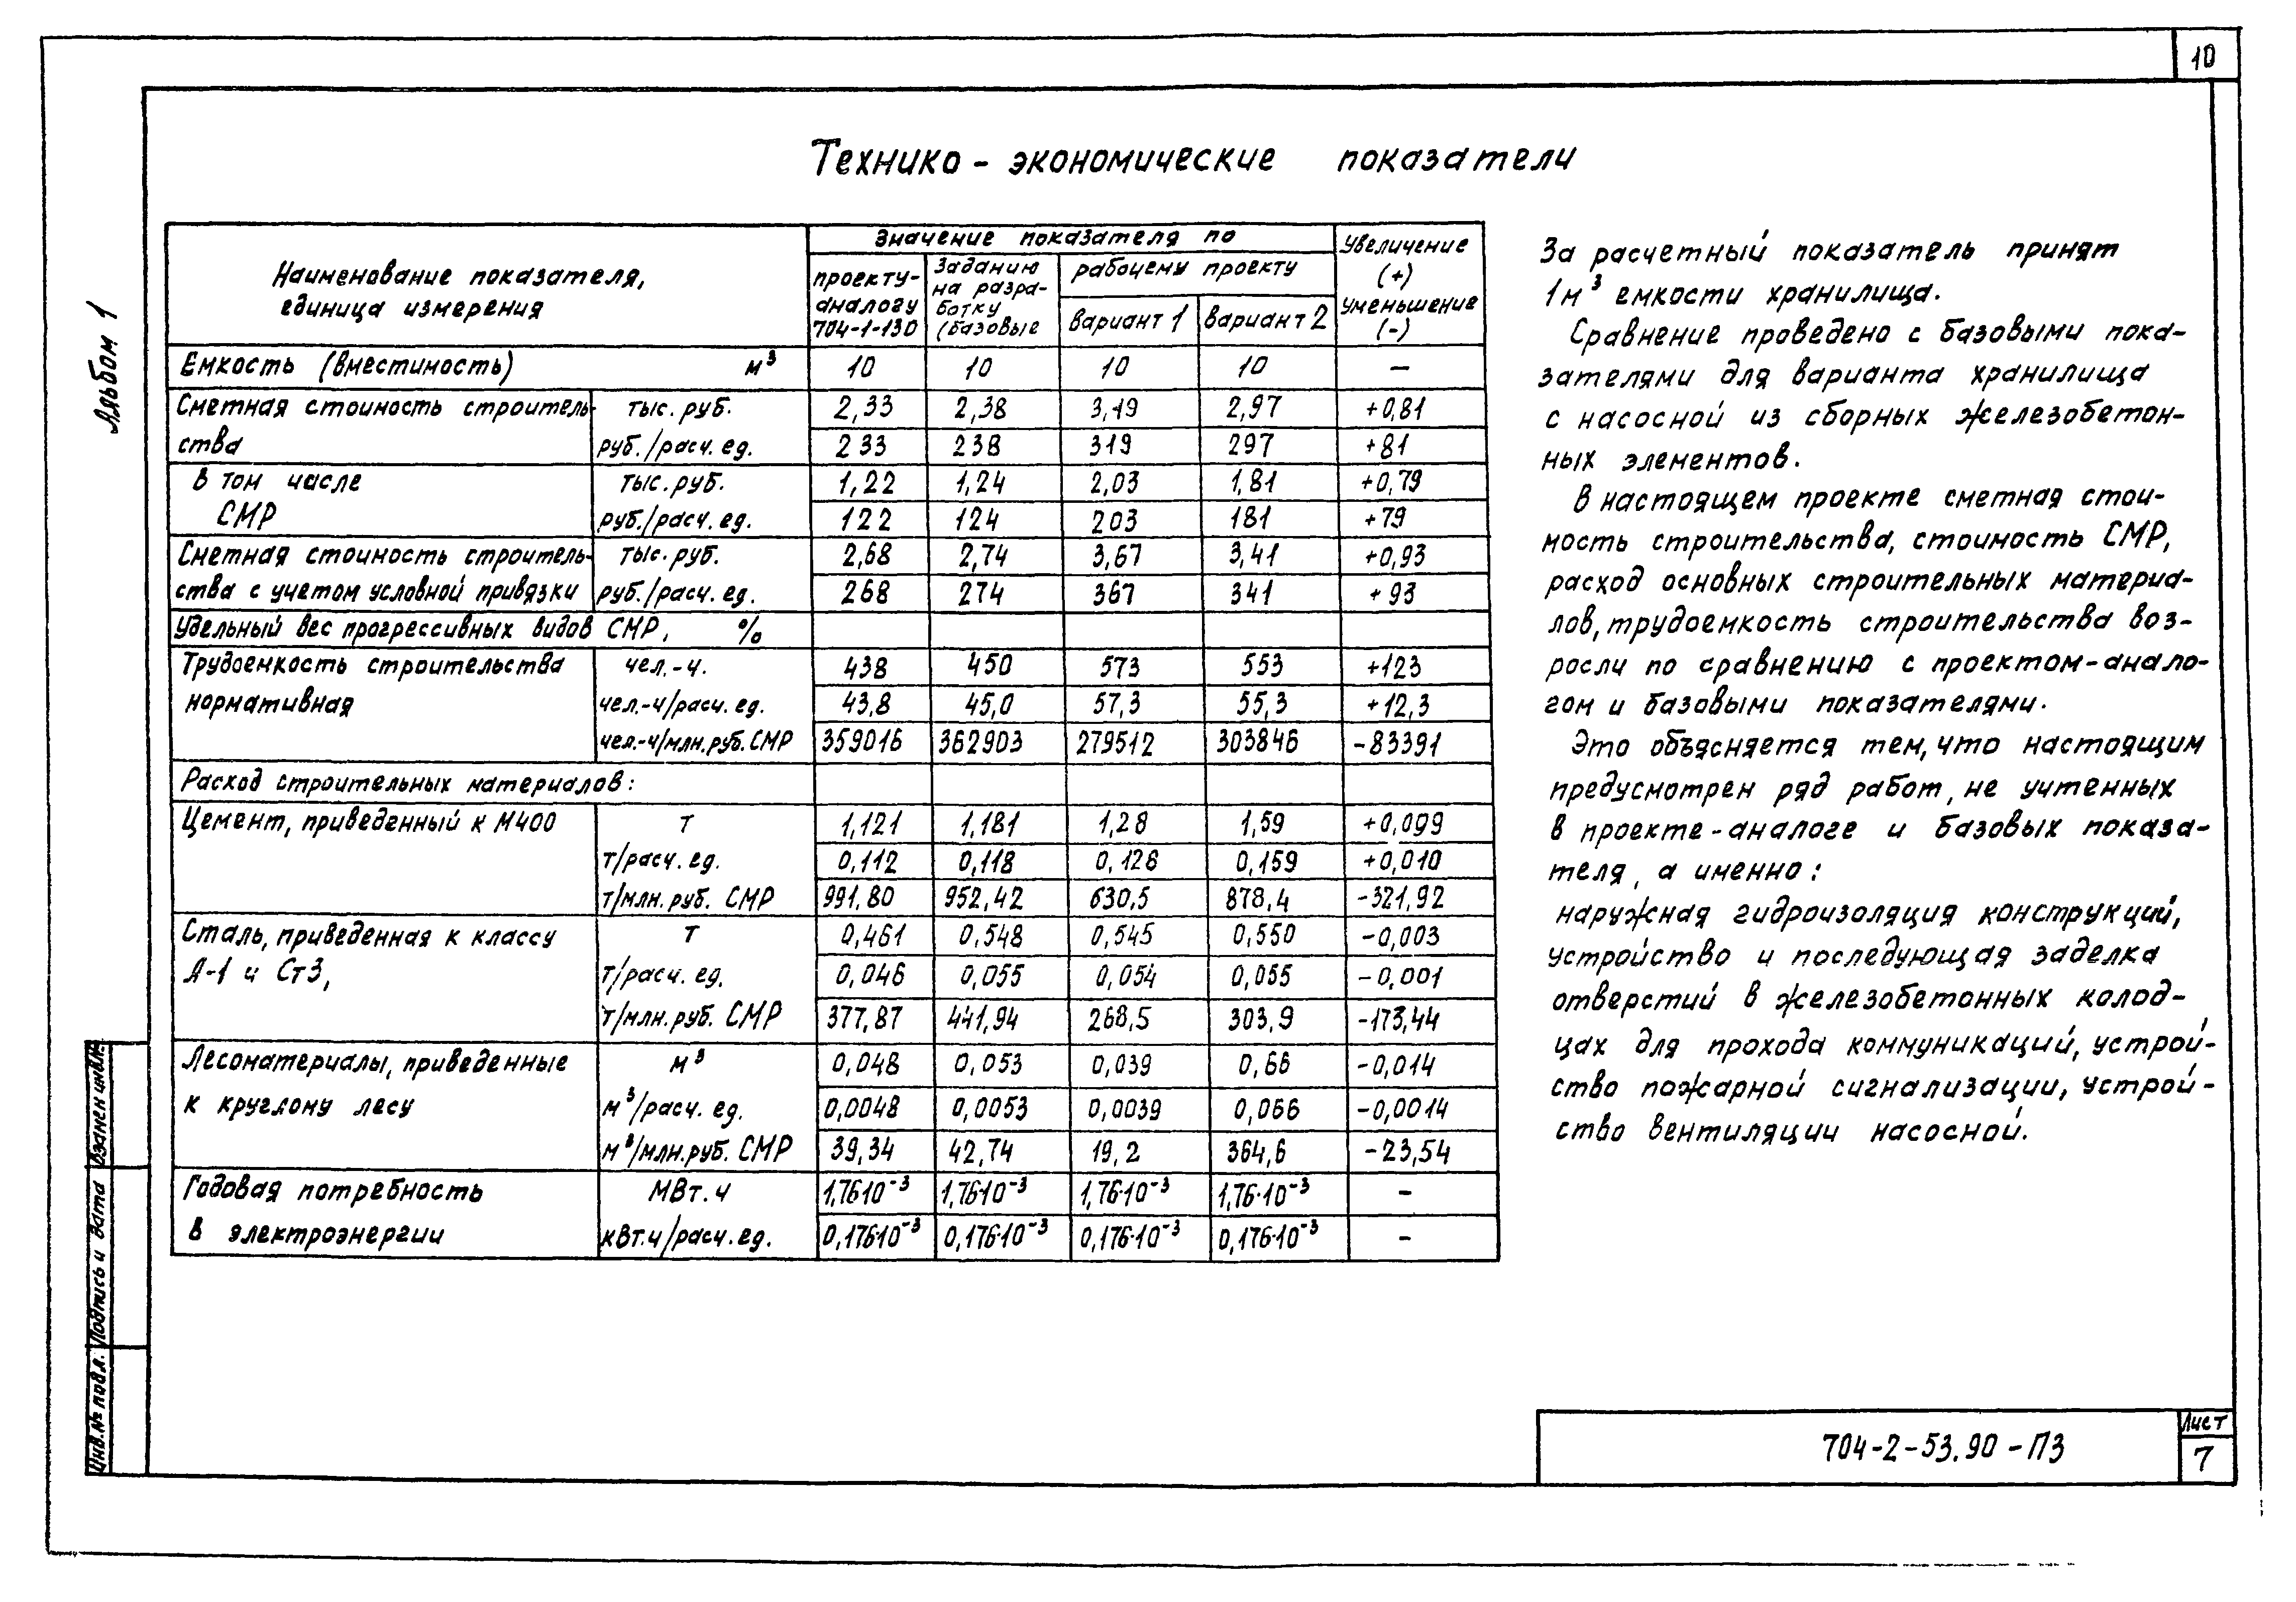 10
Альбом 1
Технико - экономические показатели
Наименование показателя,
единица измерения
Значение показателя по
проекту-
аналогу
704-1-130
Заданию
на разра-
ботку
(базовые
рабочему проекту
Вариант 1
Вариант 2
Увеличение
(+)
Уменьшение
(-)
Емкость (вместимость) м³ 10 10 10 10 —
Сметная стоимость строитель- тыс. руб. 2,33 2,38 3,19 2,97 +0,81
ства руб./расч. ед. 233 238 319 297 +81
В том числе тыс. руб. 1,22 1,24 2,03 1,81 +0,79
СМР руб./расч. ед. 122 124 203 181 +79
Сметная стоимость строитель- тыс. руб. 2,68 2,74 3,67 3,41 +0,93
ства с учетом условной привязки руб./расч. ед. 268 274 367 341 +93
Удельный вес прогрессивных видов СМР, %
Трудоемкость строительства чел.-ч. 438 450 573 553 +123
нормативная чел.-ч/расч. ед. 43,8 45,0 57,3 55,3 +12,3
чел.-ч/млн.руб. СМР 359016 362903 279512 303846 -83391
Расход строительных материалов:
Цемент, приведенный к М400 т 1,121 1,181 1,28 1,59 +0,099
т/расч. ед. 0,112 0,118 0,128 0,159 +0,010
т/млн. руб. СМР 991,80 952,42 630,5 878,4 -321,92
Сталь, приведенная к классу т 0,461 0,548 0,545 0,550 -0,003
А-1 и Ст3, т/расч. ед. 0,046 0,055 0,054 0,055 -0,001
т/млн. руб. СМР 377,87 441,94 268,5 303,9 -173,44
Лесоматериалы, приведенные м³ 0,048 0,053 0,039 0,66 -0,014
к круглому лесу м³/расч. ед. 0,0048 0,0053 0,0039 0,066 -0,0014
м³/млн.руб. СМР 39,34 42,74 19,2 364,6 -23,54
Годовая потребность МВт.ч 1,76·10⁻³ 1,76·10⁻³ 1,76·10⁻³ 1,76·10⁻³ -
в электроэнергии кВт.ч/расч. ед. 0,176·10⁻³ 0,176·10⁻³ 0,176·10⁻³ 0,176·10⁻³ -
За расчетный показатель принят
1м³ емкости хранилища.
Сравнение проведено с базовыми пока-
зателями для варианта хранилища
с насосной из сборных железобетон-
ных элементов.
В настоящем проекте сметная стои-
мость строительства, стоимость СМР,
расход основных строительных материа-
лов, трудоемкость строительства воз-
росли по сравнению с проектом-анало-
гом и базовыми показателями.
Это объясняется тем, что настоящим
предусмотрен ряд работ, не учтенных
в проекте-аналоге и базовых показа-
теля, а именно:
наружная гидроизоляция конструкций,
устройство и последующая заделка
отверстий в железобетонных колод-
цах для прохода коммуникаций, устрой-
ство пожарной сигнализации, устрой-
ство вентиляции насосной.
Инв.№ подл. Подпись и дата Взамен инв.№
704-2-53.90-ПЗ
Лист
7